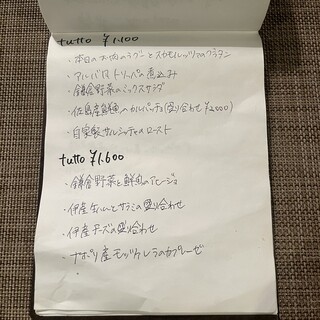 tutto ¥1.100
・本日のお肉のラグーとスカモルツァのグラタン
・アルバ風 トリッパの煮込み
・鎌倉野菜のミックスサラダ
・佐島産鮮魚のカルパッチョ(盛り合わせ ¥2,000)
・自家製サルシッチャのロースト
tutto ¥1.600
・鎌倉野菜と鮮魚のアヒージョ
・伊産生ハムとサラミの盛り合わせ
・伊産チーズの盛り合わせ
・ナポリ産モッツァレラのカプレーゼ